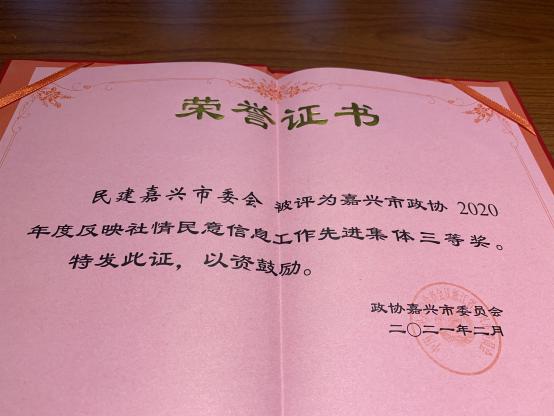 荣誉证书
民建嘉兴市委会 被评为嘉兴市政协 2020
年度反映社情民意信息工作先进集体三等奖。
特发此证，以资鼓励。
政协嘉兴市委员会
二〇二一年二月